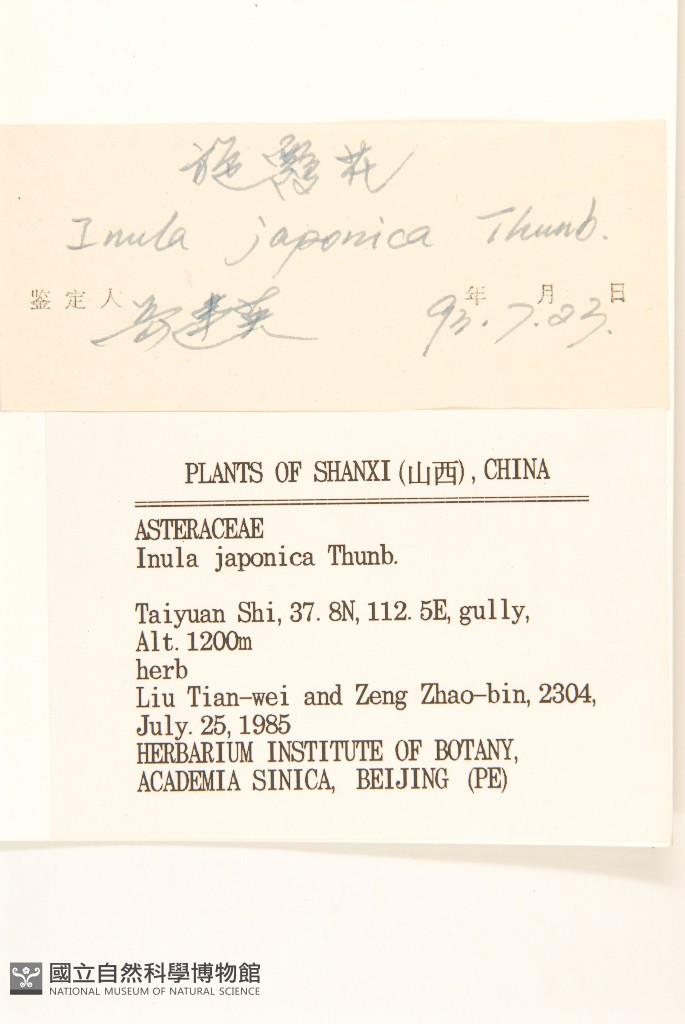 旋覆花
Inula japonica Thunb.
鉴定人 年 月 日
93.7.23.
PLANTS OF SHANXI(山西), CHINA
ASTERACEAE
Inula japonica Thunb.
Taiyuan Shi, 37. 8N, 112. 5E, gully,
Alt. 1200m
herb
Liu Tian-wei and Zeng Zhao-bin, 2304,
July. 25, 1985
HERBARIUM INSTITUTE OF BOTANY,
ACADEMIA SINICA, BEIJING (PE)
國立自然科學博物館
NATIONAL MUSEUM OF NATURAL SCIENCE